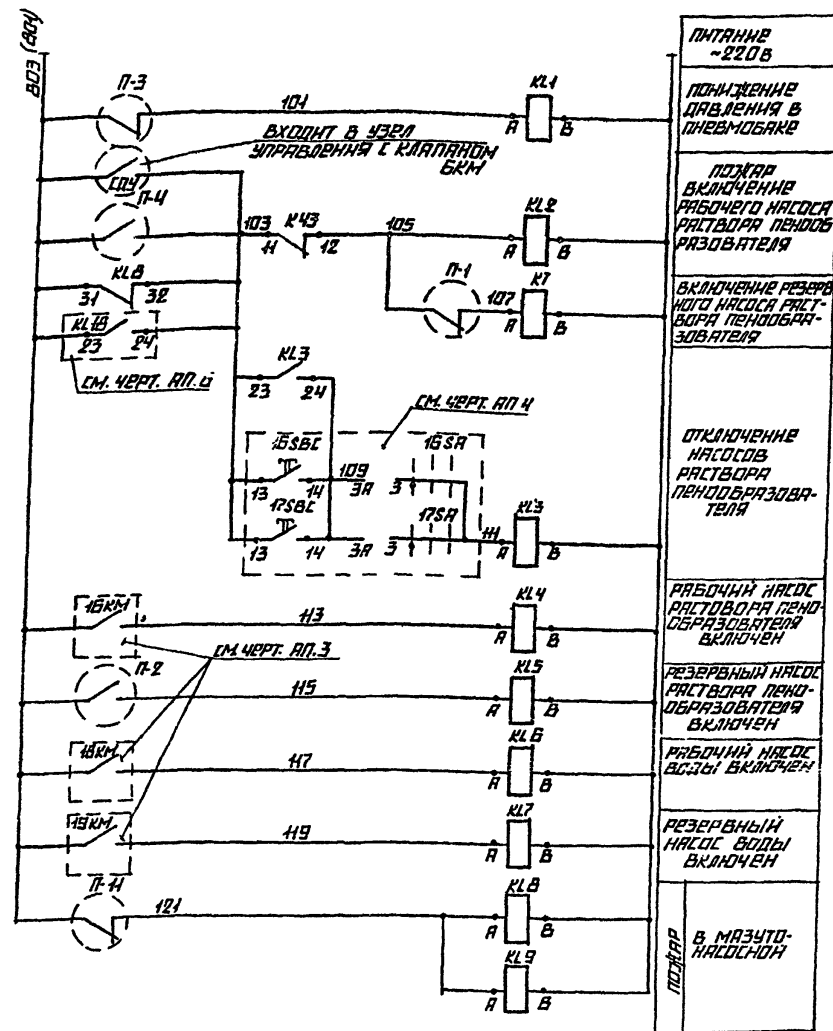 803 (804)
П-3
101
KL1
А
В
ВХОДИТ В УЗЕЛ
УПРАВЛЕНИЯ С КЛАПАНОМ
БКМ
СПУ
П-4
103
11
КЧ3
12
105
KL2
А
В
KL8
31
32
П-1
107
КТ
А
В
KL18
23
24
СМ. ЧЕРТ. АП.6
KL3
23
24
СМ. ЧЕРТ. АП 4
16SBC
13
14
109
3А
3
16SA
17SBC
13
14
3А
3
17SA
111
KL3
А
В
16КМ
113
KL4
А
В
СМ. ЧЕРТ. АП.3
П-2
115
KL5
А
В
18КМ
117
KL6
А
В
19КМ
119
KL7
А
В
П-11
121
KL8
А
В
KL9
А
В
ПИТАНИЕ
~220В
ПОНИЖЕНИЕ
ДАВЛЕНИЯ В
ПНЕВМОБАКЕ
ПОЖАР
ВКЛЮЧЕНИЕ
РАБОЧЕГО НАСОСА
РАСТВОРА ПЕНООБ
РАЗОВАТЕЛЯ
ВКЛЮЧЕНИЕ РЕЗЕРВ
НОГО НАСОСА РАСТ-
ВОРА ПЕНООБРА-
ЗОВАТЕЛЯ
ОТКЛЮЧЕНИЕ
НАСОСОВ
РАСТВОРА
ПЕНООБРАЗОВА-
ТЕЛЯ
РАБОЧИЙ НАСОС
РАСТОВОРА ПЕНО-
ОБРАЗОВАТЕЛЯ
ВКЛЮЧЕН
РЕЗЕРВНЫЙ НАСОС
РАСТВОРА ПЕНО-
ОБРАЗОВАТЕЛЯ
ВКЛЮЧЕН
РАБОЧИЙ НАСОС
ВОДЫ ВКЛЮЧЕН
РЕЗЕРВНЫЙ
НАСОС ВОДЫ
ВКЛЮЧЕН
ПОЖАР
В МАЗУТО-
НАСОСНОЙ